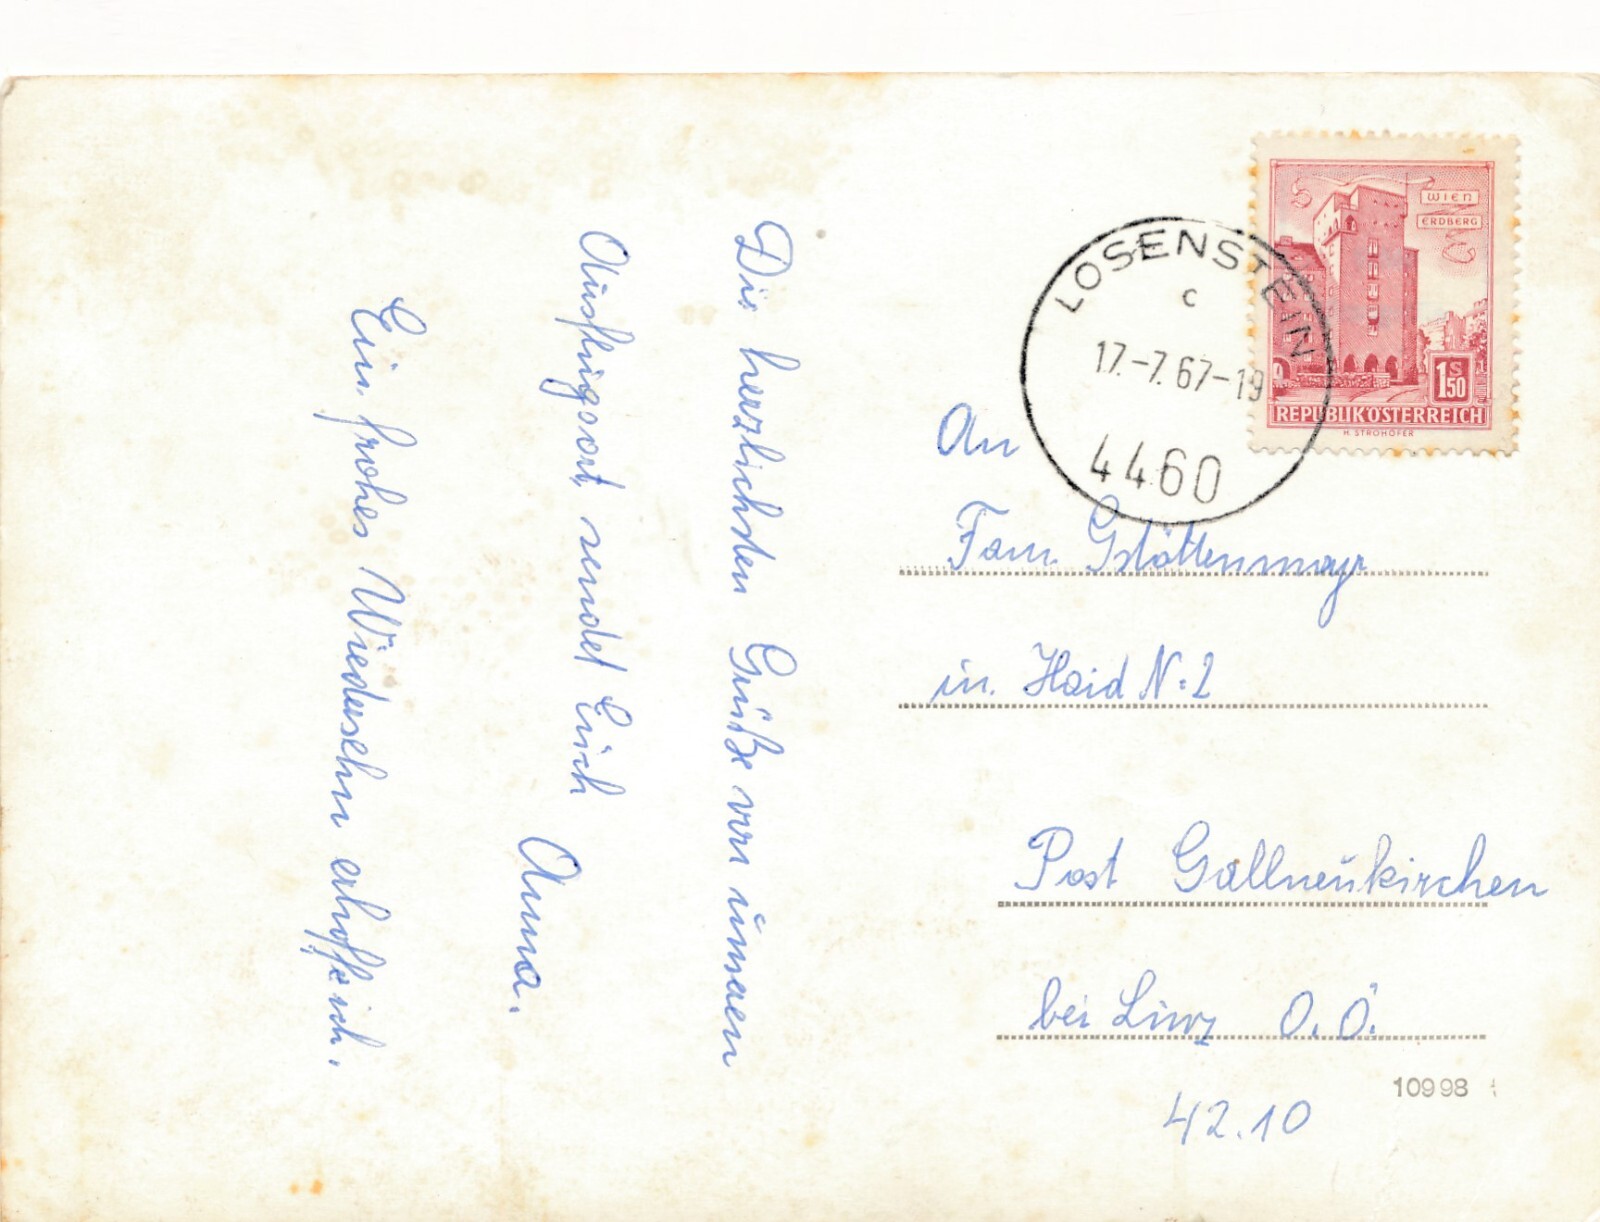 Die herzlichsten Grüße von unsaen
Ausflugsort, sendet Euch
Anna.
Ein frohes Wiedersehn erhofft ich.
WIEN
ERDBERG
1S50
REPUBLIK ÖSTERREICH
H. STROHOFER
LOSENSTEIN
c
17.-7.67-19
4460
An
Fam. Gstöttenmayr
in Haid N=2
Post Gallneukirchen
bei Linz O.Ö.
42.10
10998